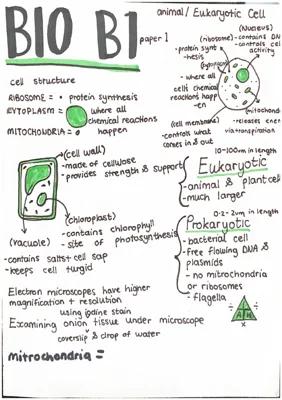 BIO B1
paper 1
animal/ Eukaryotic Cell
(Nucleus)
- contains DN
- controls cell
activity
(ribosome)-
- protein synt
- hesis
(cytoplasm)
- where all
cells chemical
reactions happ
- en
(cell membrane)
- controls what
comes in & out
(mitochond
- releases ener
via transpiration
cell structure
RIBOSOME = • protein synthesis
CYTOPLASM = where all
chemical reactions
happen
MITOCHONDRIA =
(cell wall)
- made of cellulose
- provides strength & support
(chloroplast)
- contains chlorophyll
- site of photosynthesis
(vacuole)
- contains salts+ cell sap
- keeps cell turgid
10-100um in length
Eukaryotic
- animal & plant cell
- much larger
0.2-2um in length
Prokaryotic
- bacterial cell
- free flowing DNA &
plasmids
- no mitrochondria
or ribosomes
- flagella
Electron microscopes have higher
magnification + resolution
using iodine stain
Examining onion tissue under microscope
coverslip & drop of water
I
A M
mitrochondria =